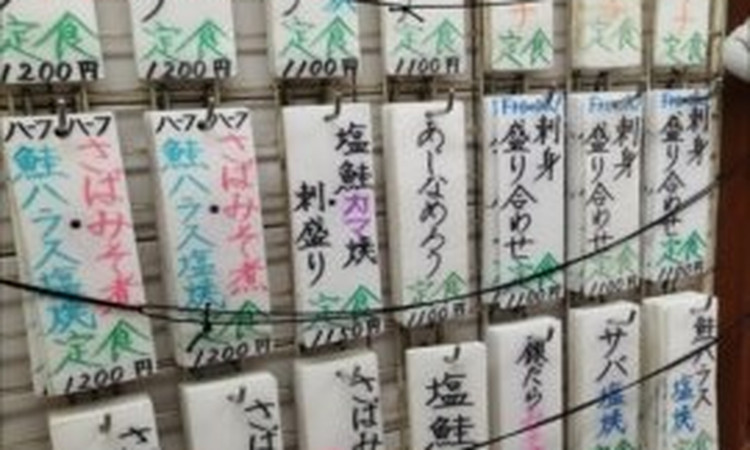 定食
1200円
定食
1200円
定食
1100円
定食
1100円
定食
定食
定食
ハーフ ハーフ
さばみそ煮
・
鮭ハラス塩焼
定食
1200円
ハーフ ハーフ
さばみそ煮
・
鮭ハラス塩焼
定食
1200円
塩鮭カマ焼
・
刺盛り
定食
1150円
あじなめろう
定食
1100円
刺身
盛り合わせ
定食
1100円
刺身
盛り合わせ
定食
1100円
刺身
盛り合わせ
定食
1100円
さ
さば
さばみ
塩鮭
銀だら
サバ塩焼
鮭ハラス
塩焼
定食